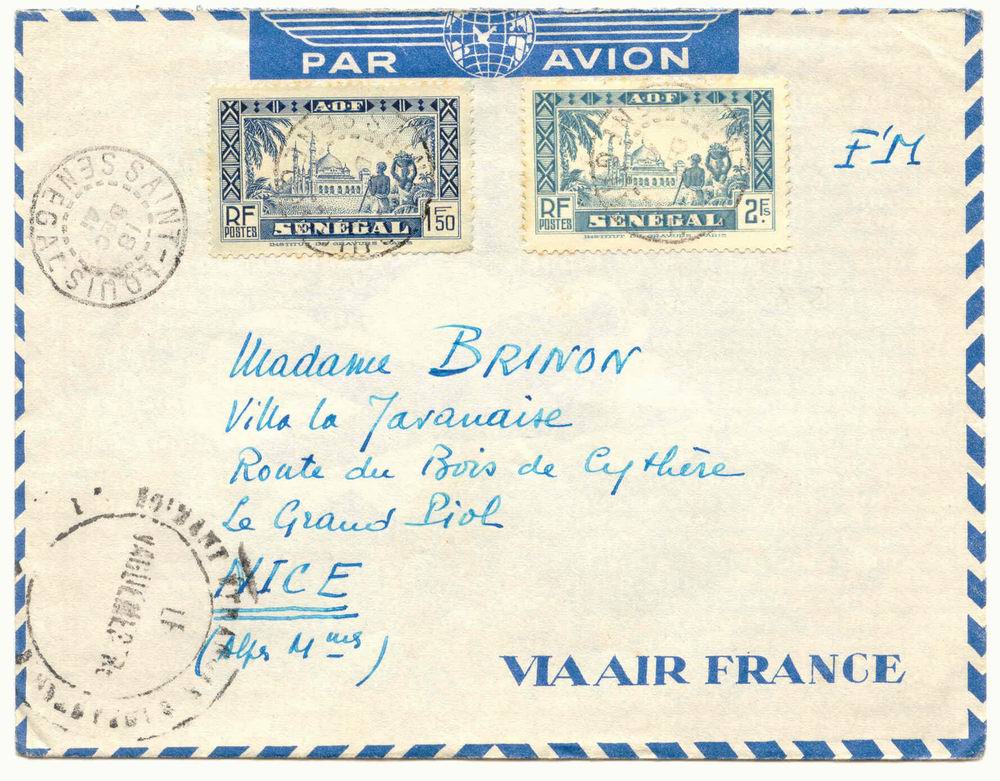 PAR AVION
A.O.F
RF
POSTES
SENÉGAL
1F50
INSTITUT DE GRAVURE PARIS
A.O.F
RF
POSTES
SENÉGAL
2Fs.
INSTITUT DE GRAVURE PARIS
F'M
SAINT-LOUIS SENEGAL
18
Madame BRINON
Villa la Javanaise
Route du Bois de Cythère
Le Grand Piol
NICE
(Alpes Mmes)
LE
VAGUEMESTRE
VIA AIR FRANCE